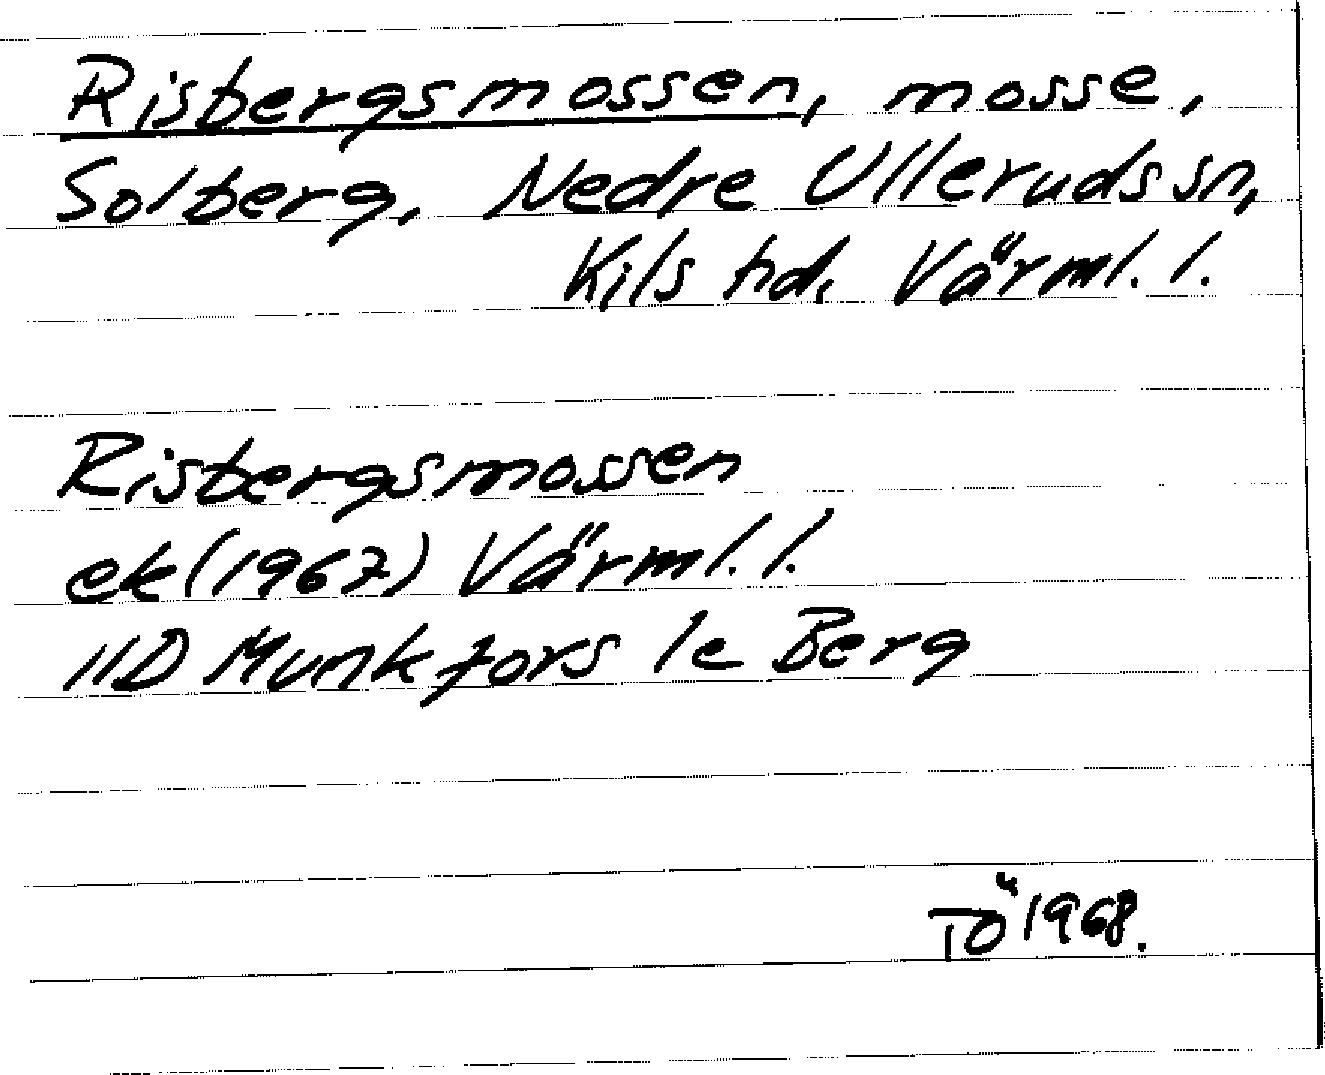 Risbergsmossen, mosse,
Solberg, Nedre Ulleruds sn,
Kils hd, Värml. l.
Risbergsmossen
ek (1967) Värml. l.
11D Munkfors 1e Berg
TÖ 1968.